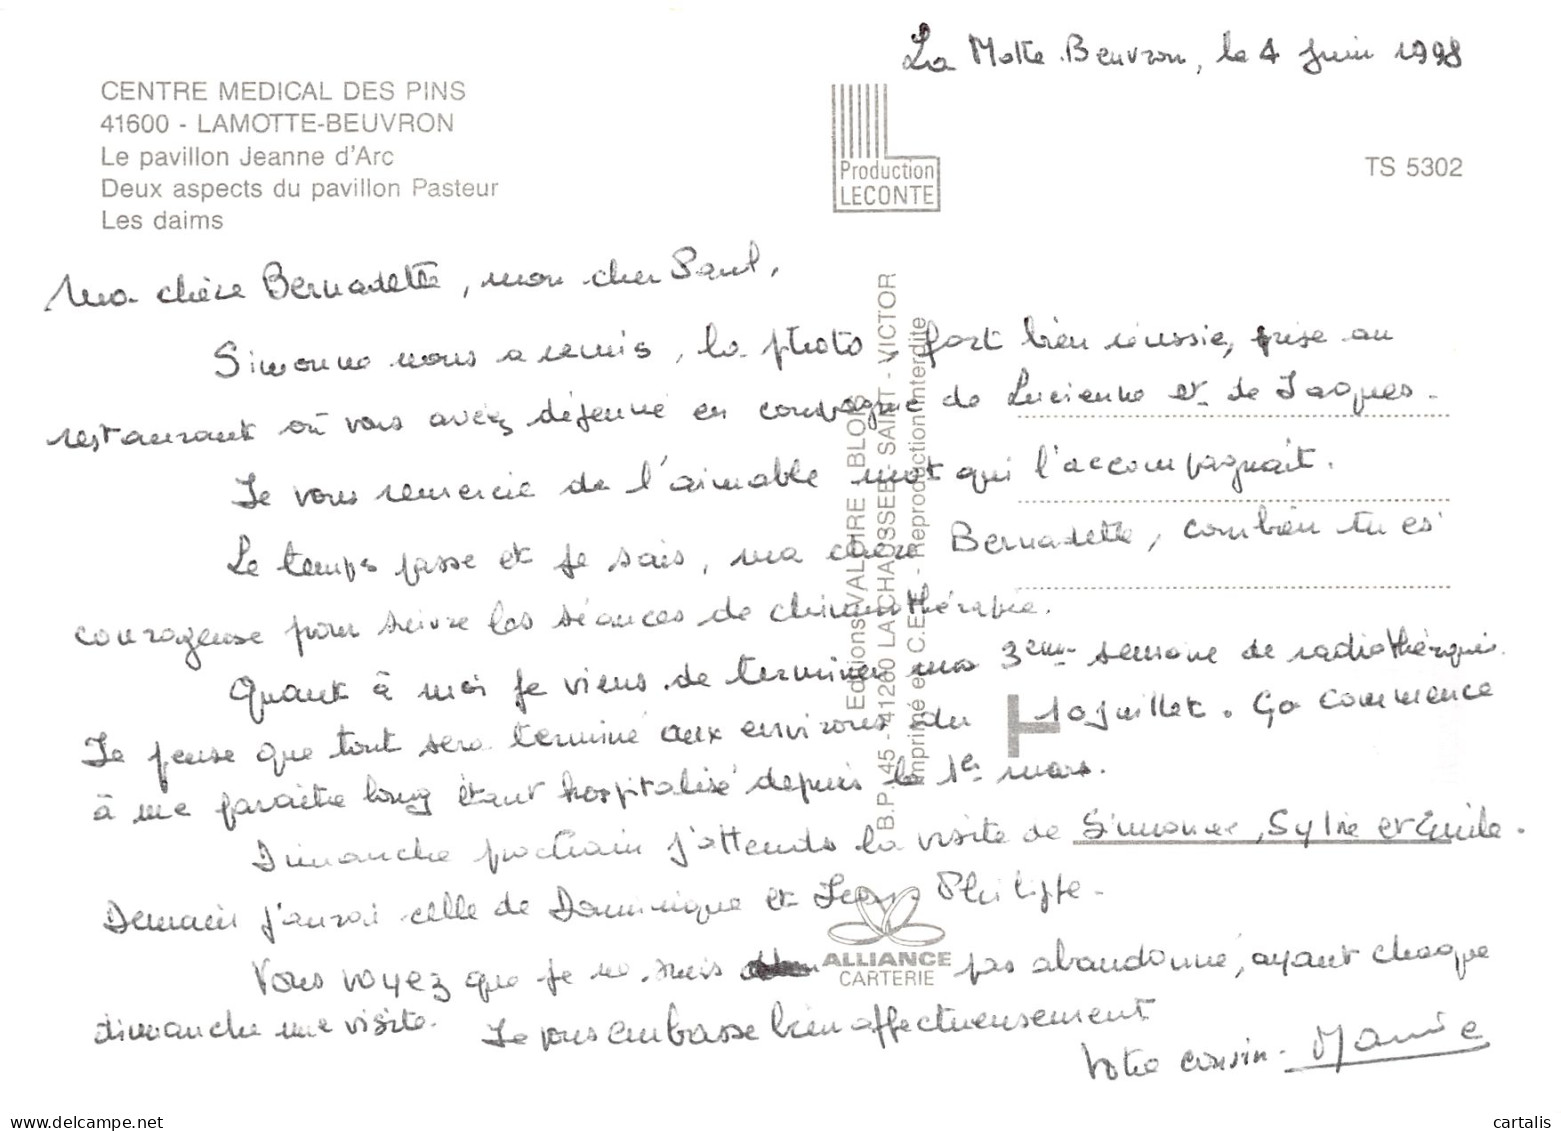 La Motte-Beuvron, le 4 Juin 1998
CENTRE MEDICAL DES PINS
41600 - LAMOTTE-BEUVRON
Le pavillon Jeanne d'Arc
Deux aspects du pavillon Pasteur
Les daims
Production
LECONTE
TS 5302
Ma chère Bernadette, mon cher Paul,
Simonne nous a remis, la photo, fort bien réussie, prise au
restaurant où vous avez déjeuné en compagnie de Lucienne et de Jacques.
Je vous remercie de l'aimable mot qui l'accompagnait.
Le temps passe et je sais, ma chère Bernadette, combien tu es
courageuse pour suivre les séances de chimiothérapie.
Quant à moi je viens de terminer ma 3ème semaine de radiothérapie.
Je pense que tout sera terminé aux environs du 10 juillet. Ça commence
à me paraître long étant hospitalisé depuis le 1er mars.
Dimanche prochain j'attends la visite de Simonne, Sylvie et Emile.
Demain j'aurai celle de Dominique et Jean Philippe.
Vous voyez que je ne suis pas abandonné, ayant chaque
dimanche une visite. Je vous embrasse bien affectueusement
Votre cousin.
Editions VALOIRE BLOIS
B.P. 45 - 41260 LA CHAUSSEE SAINT-VICTOR
Imprimé en C.E.E. - Reproduction interdite
ALLIANCE
CARTERIE
cartalis
www.delcampe.net